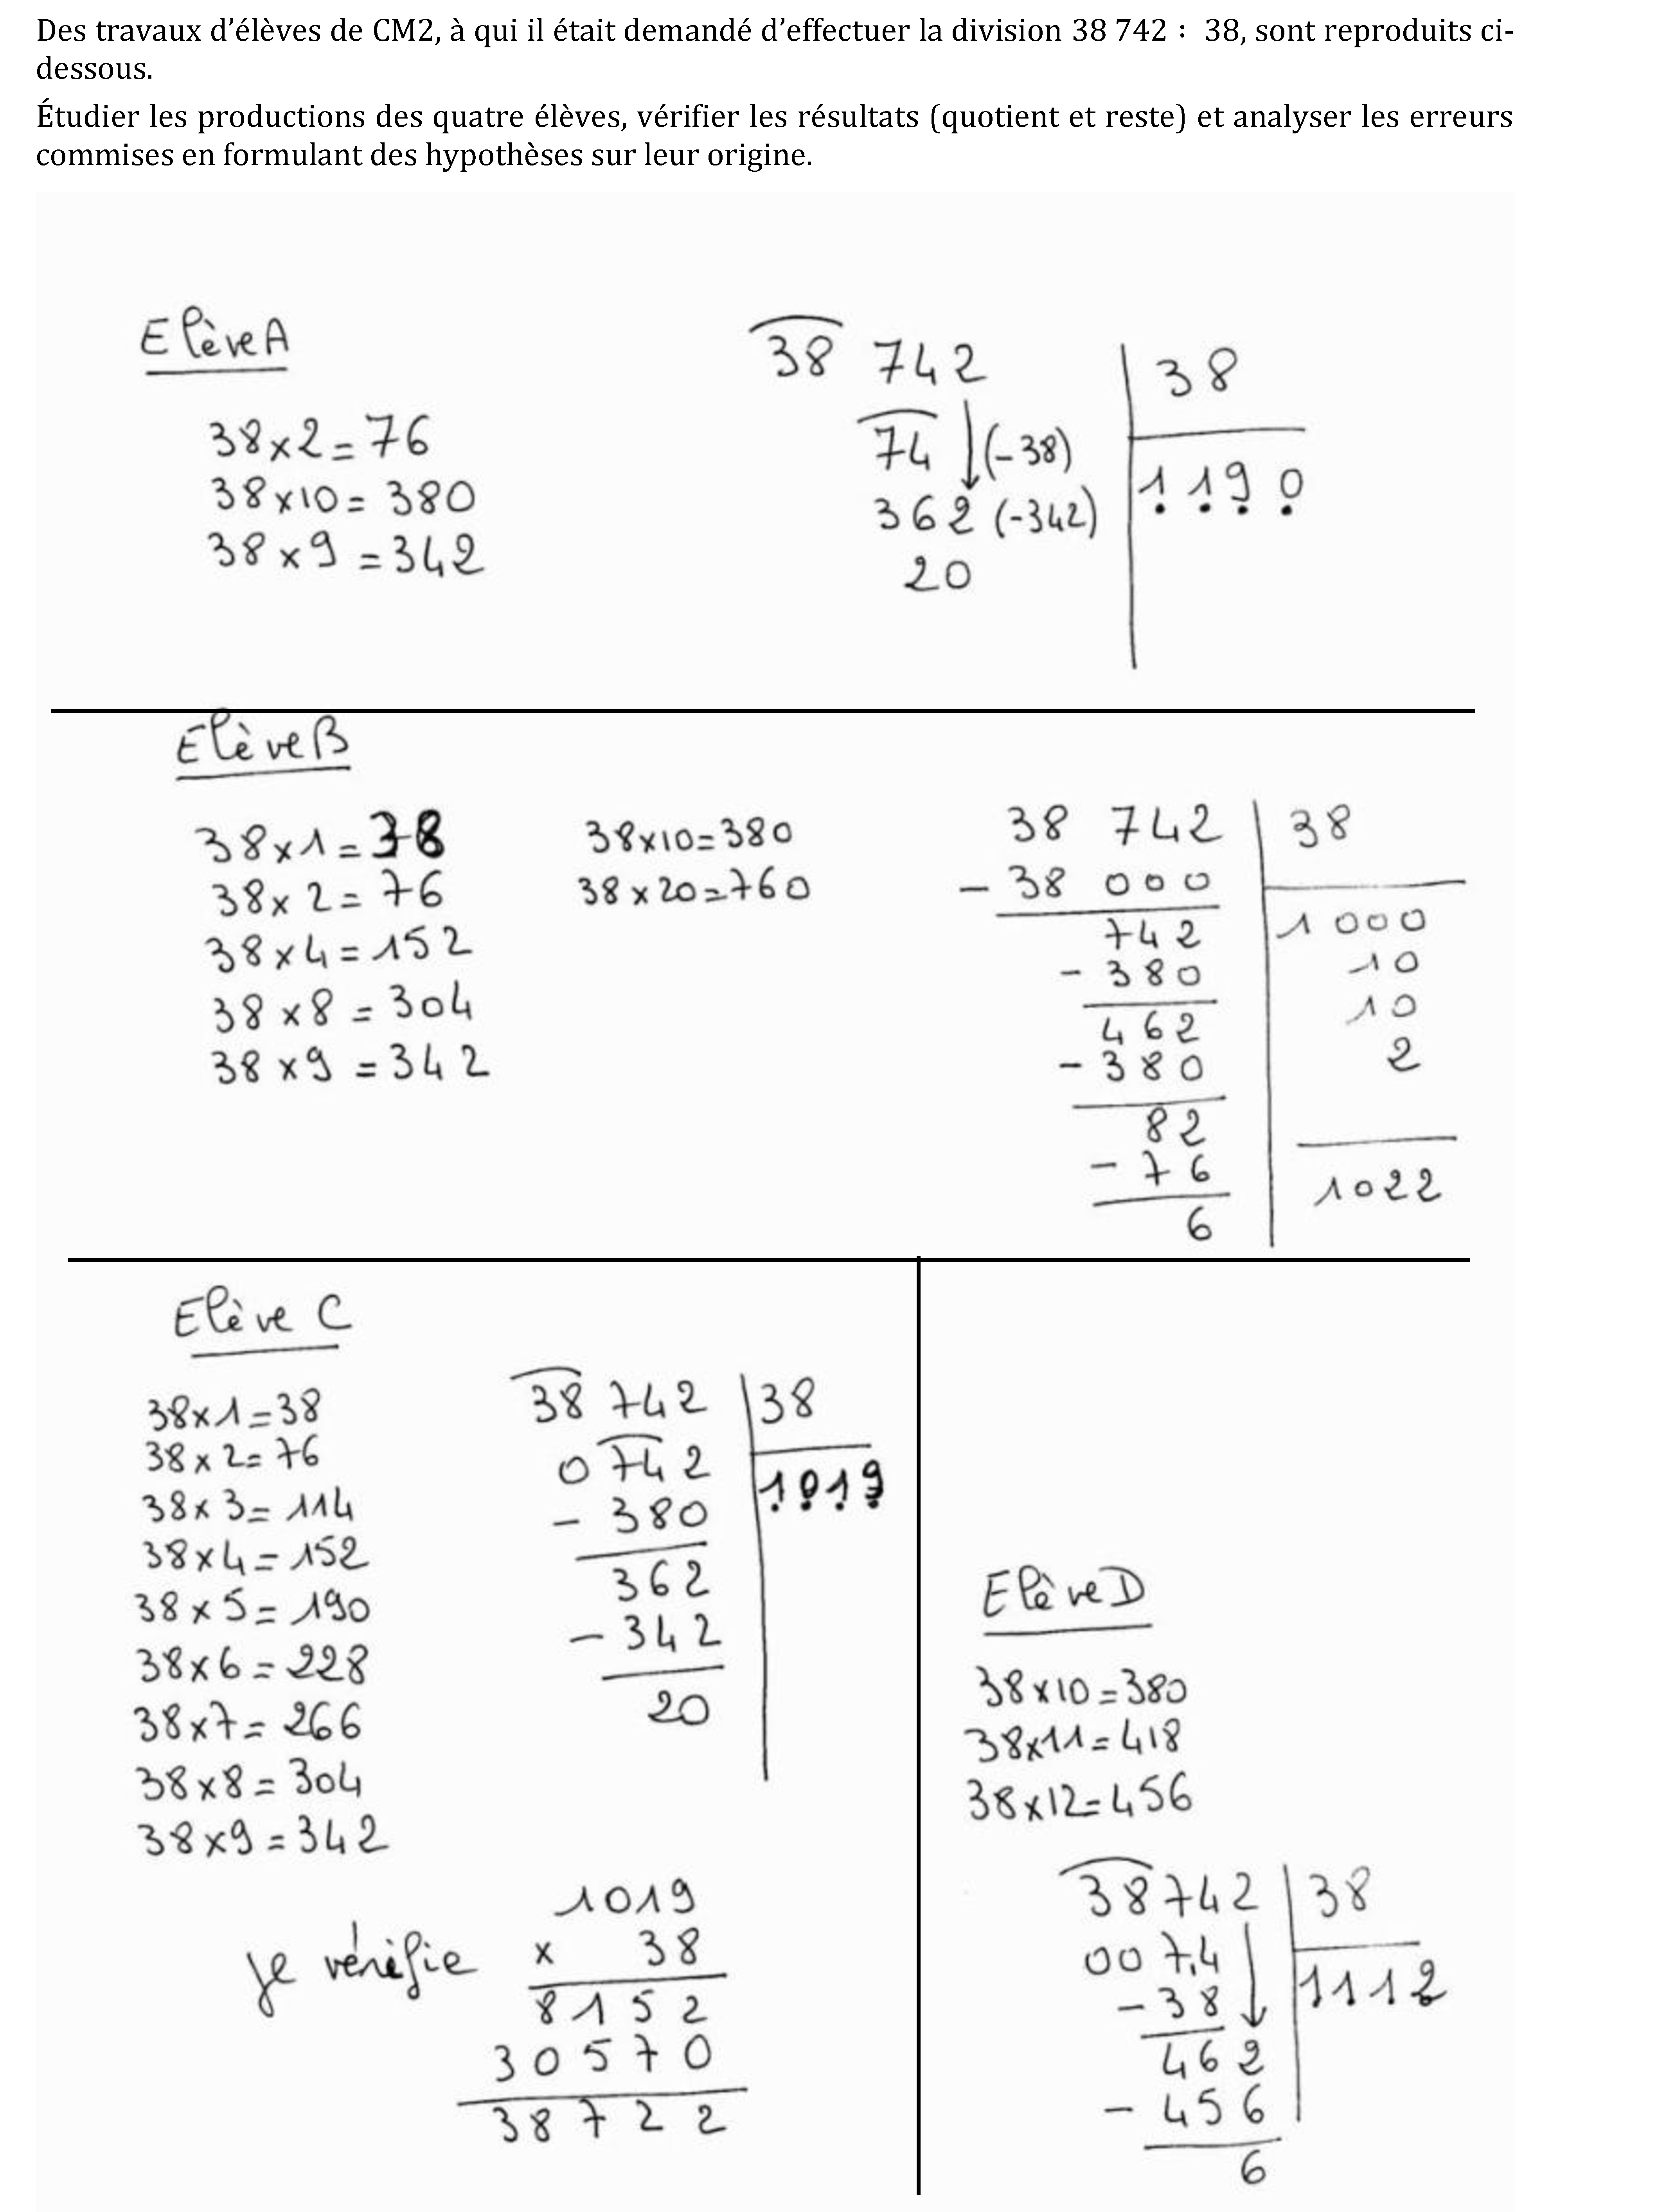 Des travaux d’élèves de CM2, à qui il était demandé d’effectuer la division 38 742 : 38, sont reproduits ci-
dessous.
Étudier les productions des quatre élèves, vérifier les résultats (quotient et reste) et analyser les erreurs
commises en formulant des hypothèses sur leur origine.
Elève A
38 x 2 = 76
38 x 10 = 380
38 x 9 = 342
38 742 38
74 (-38)
1 1 9 0
362 (-342)
20
Elève B
38 x 1 = 38
38 x 2 = 76
38 x 4 = 152
38 x 8 = 304
38 x 9 = 342
38 x 10 = 380
38 x 20 = 760
38 742 38
- 38 000
742 1 000
- 380 10
462 10
- 380 2
82
- 76 1022
6
Elève C
38 x 1 = 38
38 x 2 = 76
38 x 3 = 114
38 x 4 = 152
38 x 5 = 190
38 x 6 = 228
38 x 7 = 266
38 x 8 = 304
38 x 9 = 342
38 742 38
0 742 1019
- 380
362
- 342
20
Je vérifie
1019
x 38
8152
30570
38722
Elève D
38 x 10 = 380
38 x 11 = 418
38 x 12 = 456
38742 38
0074
- 38 1112
462
- 456
6